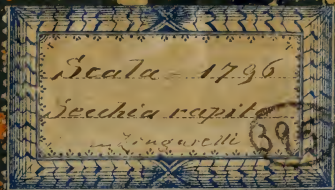 Scala - 1796
Secchia rapita
Zingarelli
395